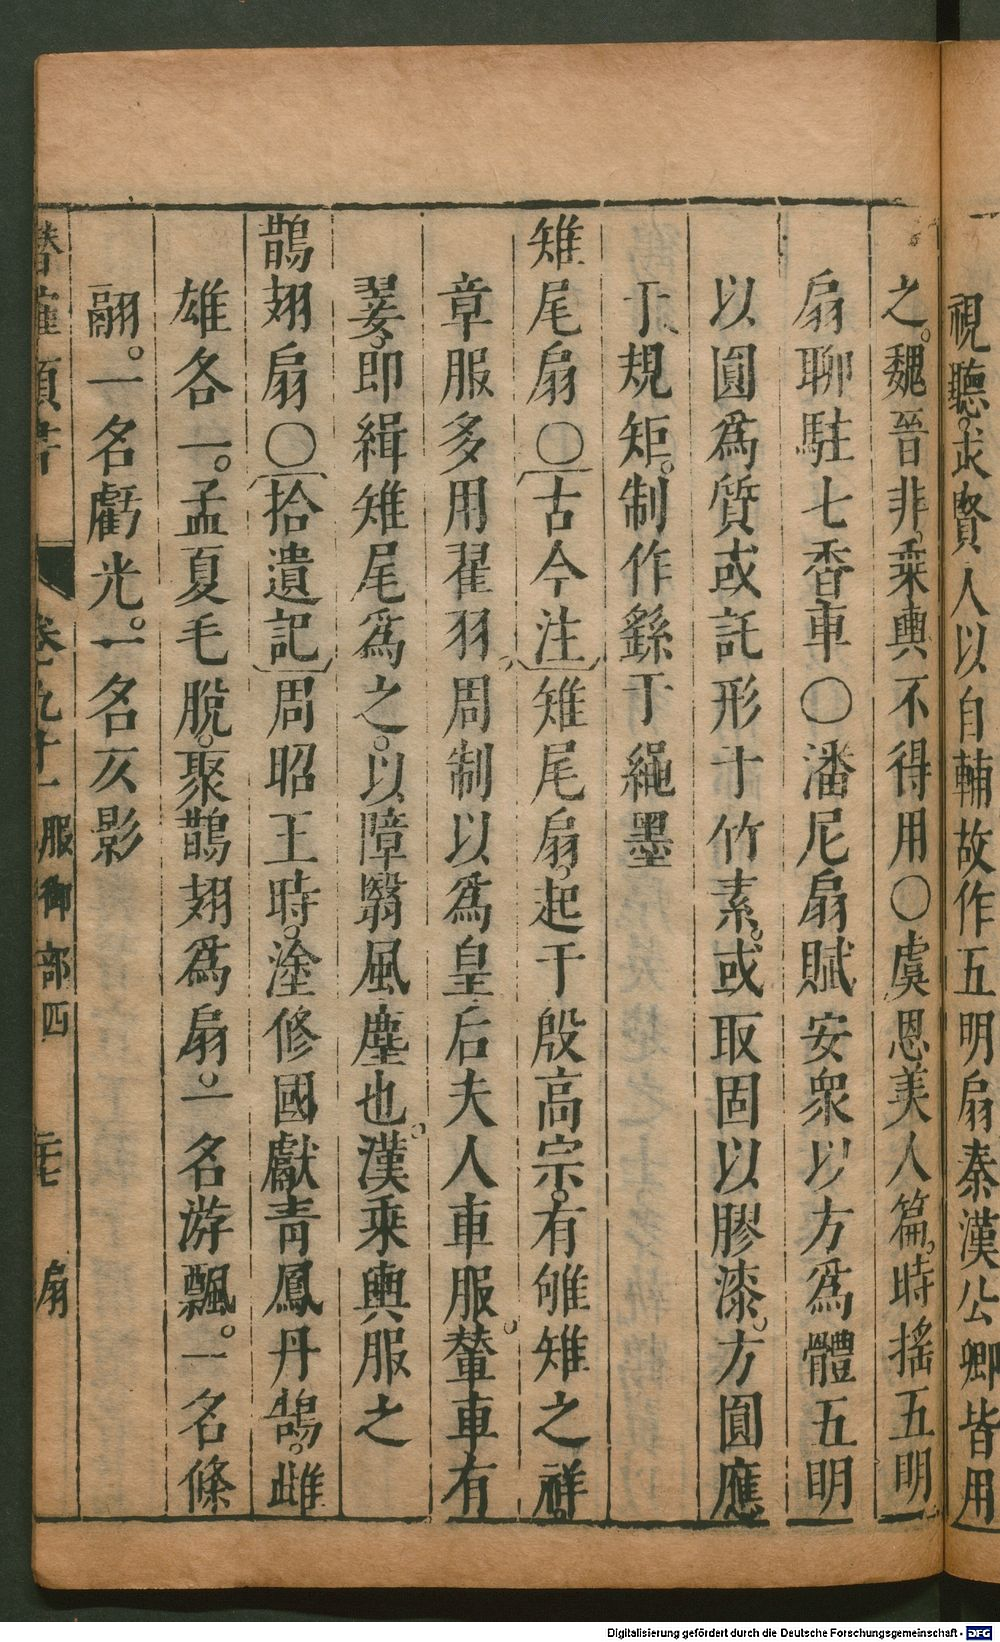 視聽。求賢人以自輔故作五明扇秦漢公卿皆用
之。魏晉非。乗輿不得用○虞恩美人篇。時搖五明
扇聊駐七香車○潘尼扇賦安衆以方爲體五明
以圓爲質或託形于竹素。或取固以膠漆。方圓應
于規矩。制作繇于繩墨
雉尾扇○古今注雉尾扇。起于殷高宗。有雊雉之祥
章服多用翟羽。周制以爲皇后夫人車服。輦車有
翣。即緝雉尾爲之。以障翳風塵也。漢乗輿服之
鵲翅扇○拾遺記周昭王時。塗修國獻青鳳丹鵠。雌
雄各一。孟夏毛脫。聚鵲翅爲扇。一名游飄。一名條
翮。一名虧光。一名亥影
潛確類書 卷之九十一 服御部四 二七 扇
Digitalisierung gefördert durch die Deutsche Forschungsgemeinschaft - DFG